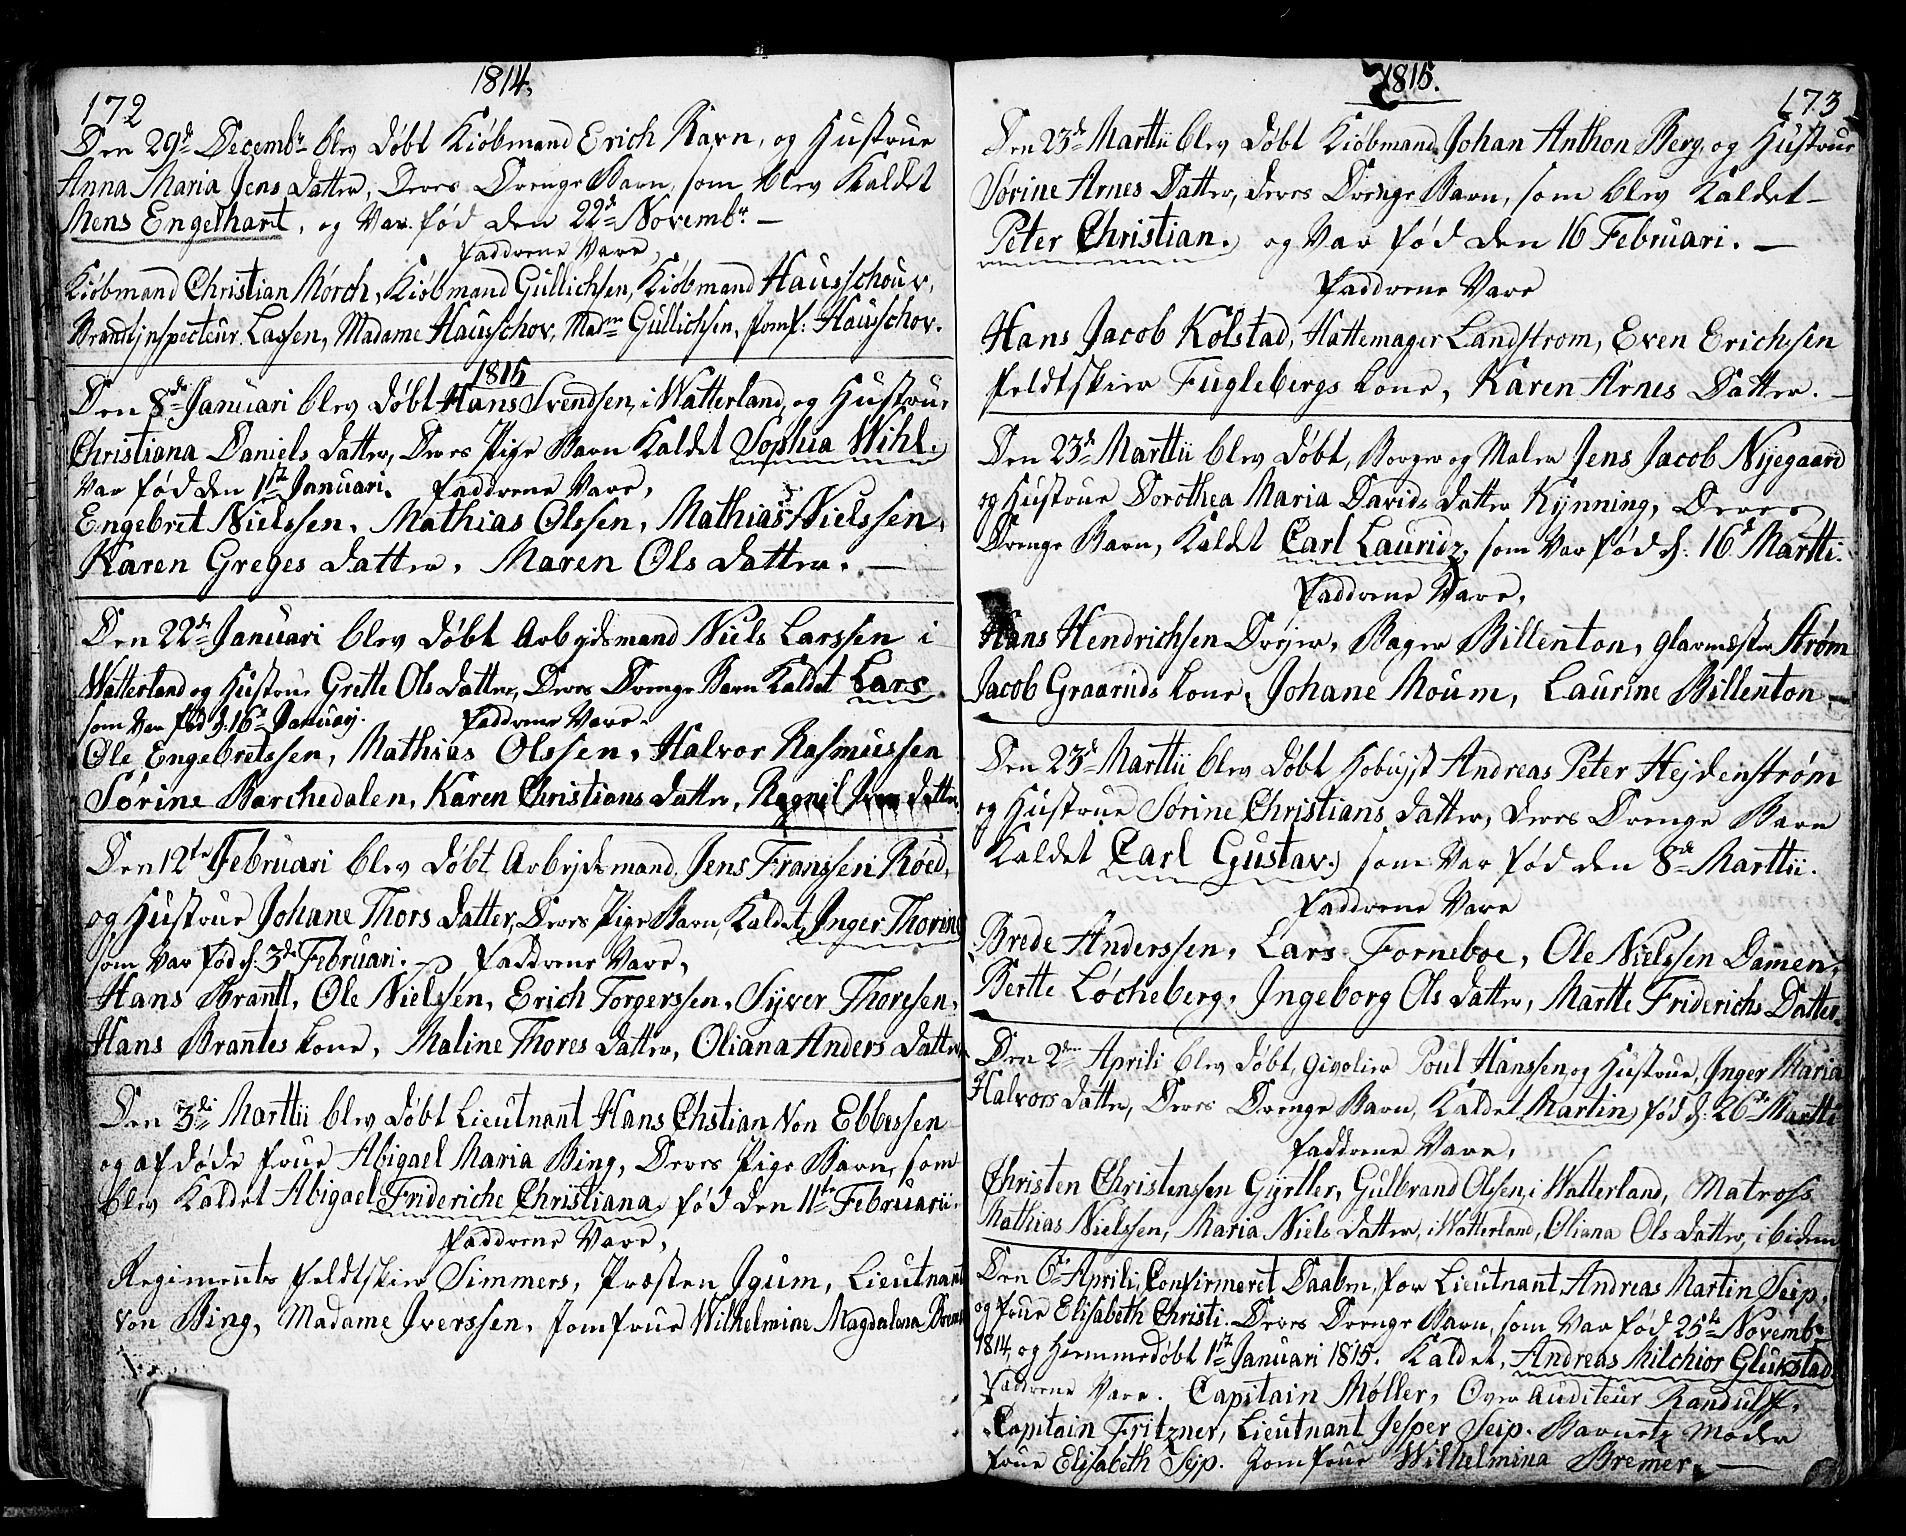 1814.
172
Den 29de Decembr. blev døbt Kiøbmand Erich Ravn, og Hustrue
Anna Maria Jens datter, Deres Drenge Barn, som blev Kaldet
Mens Engelhart, og Var fød den 22de Novembr. —
Faddrene Vare,
Kiøbmand Christian Mörch, Kiøbmand Gullichsen, Kiøbmand Hausschouv,
Brandinspecteur Lassen, Madame Hausschov, Madm Gullichsen, Jomf: Hauschov.
1815
Den 8de Januari blev døbt Hans Svendsen, i Watterland, og Hustrue,
Christiana Daniels datter, Deres Pige Barn Kaldet Sophia Wihl.
Var fød den 1ste Januari. Faddrene Vare,
Engebret Nielssen, Mathias Olssen, Mathias Nielssen,
Karen Greges datter, Maren Ols datter. —
Den 22de Januari blev døbt Arbejdsmand Niels Larssen i
Watterland og Hustrue Grette Ols datter, Deres Drenge Barn Kaldet Lars.
som Var fød d: 16de January. Faddrene Vare.
Ole Engebretssen, Mathias Olssen, Halvor Rasmussen
Sørine Barchedalen, Karen Christians datter, Ragnil datter.
Den 12te Februari blev døbt Arbejdsmand, Jens Franssen Röed,
og Hustrue Johane Thors datter, Deres Pige Barn, Kaldet, Inger Thorine
som Var fød d: 3de Februari. — Faddrene Vare,
Hans Brantt, Ole Nielssen, Erich Torgerssen, Syver Thoresen,
Hans Brantes Kone, Maline Thores datter, Oliana Anders datter
Den 3die Marttii blev døbt Lieutnant Hans Chstian Von Ebbessen
og afdøde frue Abigael Maria Bing, Deres Pige Barn, som
blev Kaldet Abigael Frideriche Christiana, fød den 11te Februarii.
Faddrene Vare,
Regiments feldtskier Simmers, Præsten Igum, Lieutnant
von Bing, Madame Iverssen, Jomfrue Wilhelmine Magdalena
1815.
173
Den 23de Marttii blev døbt Kiøbmand Johan Anthon Berg, og Hustrue
Sørine Arnes Datter, deres Drenge Barn, som blev Kaldet —
Peter Christian. og Var fød den 16 Februari. —
Faddrene Vare
Hans Jacob Kolstad, Hattemager Landstrom, Even Erichsen
feldtskier Fuglebergs Kone, Karen Arnes Datter. —
Den 23de Marttii blev døbt, Borger og Maler Jens Jacob Nyegaard
og Hustrue Dorothea Maria Davids datter Kynning, Deres
Drenge Barn, Kaldet Carl Lauridz, som Var fød d: 16de Martti.
Faddrene Vare,
Hans Hendrichsen Dreyer, Bager Billenton, glarmester Strøm
Jacob Graaruds Kone, Johane Moum, Laurine Billenton —
Den 23de Marttii blev døbt Hobuist Andreas Peter Hejdenstrøm
og Hustrue Sørine Christians datter, deres Drenge Barn
Kaldet Carl Gustav. som Var fød den 8de Marttii.
Faddrene Vare
Brede Anderssen, Lars Forneboe, Ole Nielssen Damen,
Bertte Løcheberg, Ingeborg Ols datter, Martte Friderichs Datter.
Den 2den Aprili blev døbt, Poul Hanssen og Hustrue, Inger Maria
Halvors datter, Deres Drenge Barn, Kaldet Martin, fød d: 26de Martti
Faddrene Vare,
Christen Christenssen Gyrtler, Gulbrand Olssen, i Watterland, Matross
Mathias Nielssen, Maria Niels datter, i Watterland, Oliana Ols datter, ibidem
Den 6te Aprili, Confirmeret Daaben, for Lieutnant, Andreas Martin Seip,
og frue Elisabeth Christi. Deres Drenge Barn, som Var fød 25de Novembr.
1814, og Hiemmedøbt 1ste Januari 1815. Kaldet, Andreas Milchior Glückstad.
Faddrene Vare. Capitain Møller, Over Auditeur Randulff,
Capitain Fritzner, Lieutnant Jesper Seip. Barnets Moder
frue Elisabeth Seip. Jomfrue Wilhelmina Bremer. —